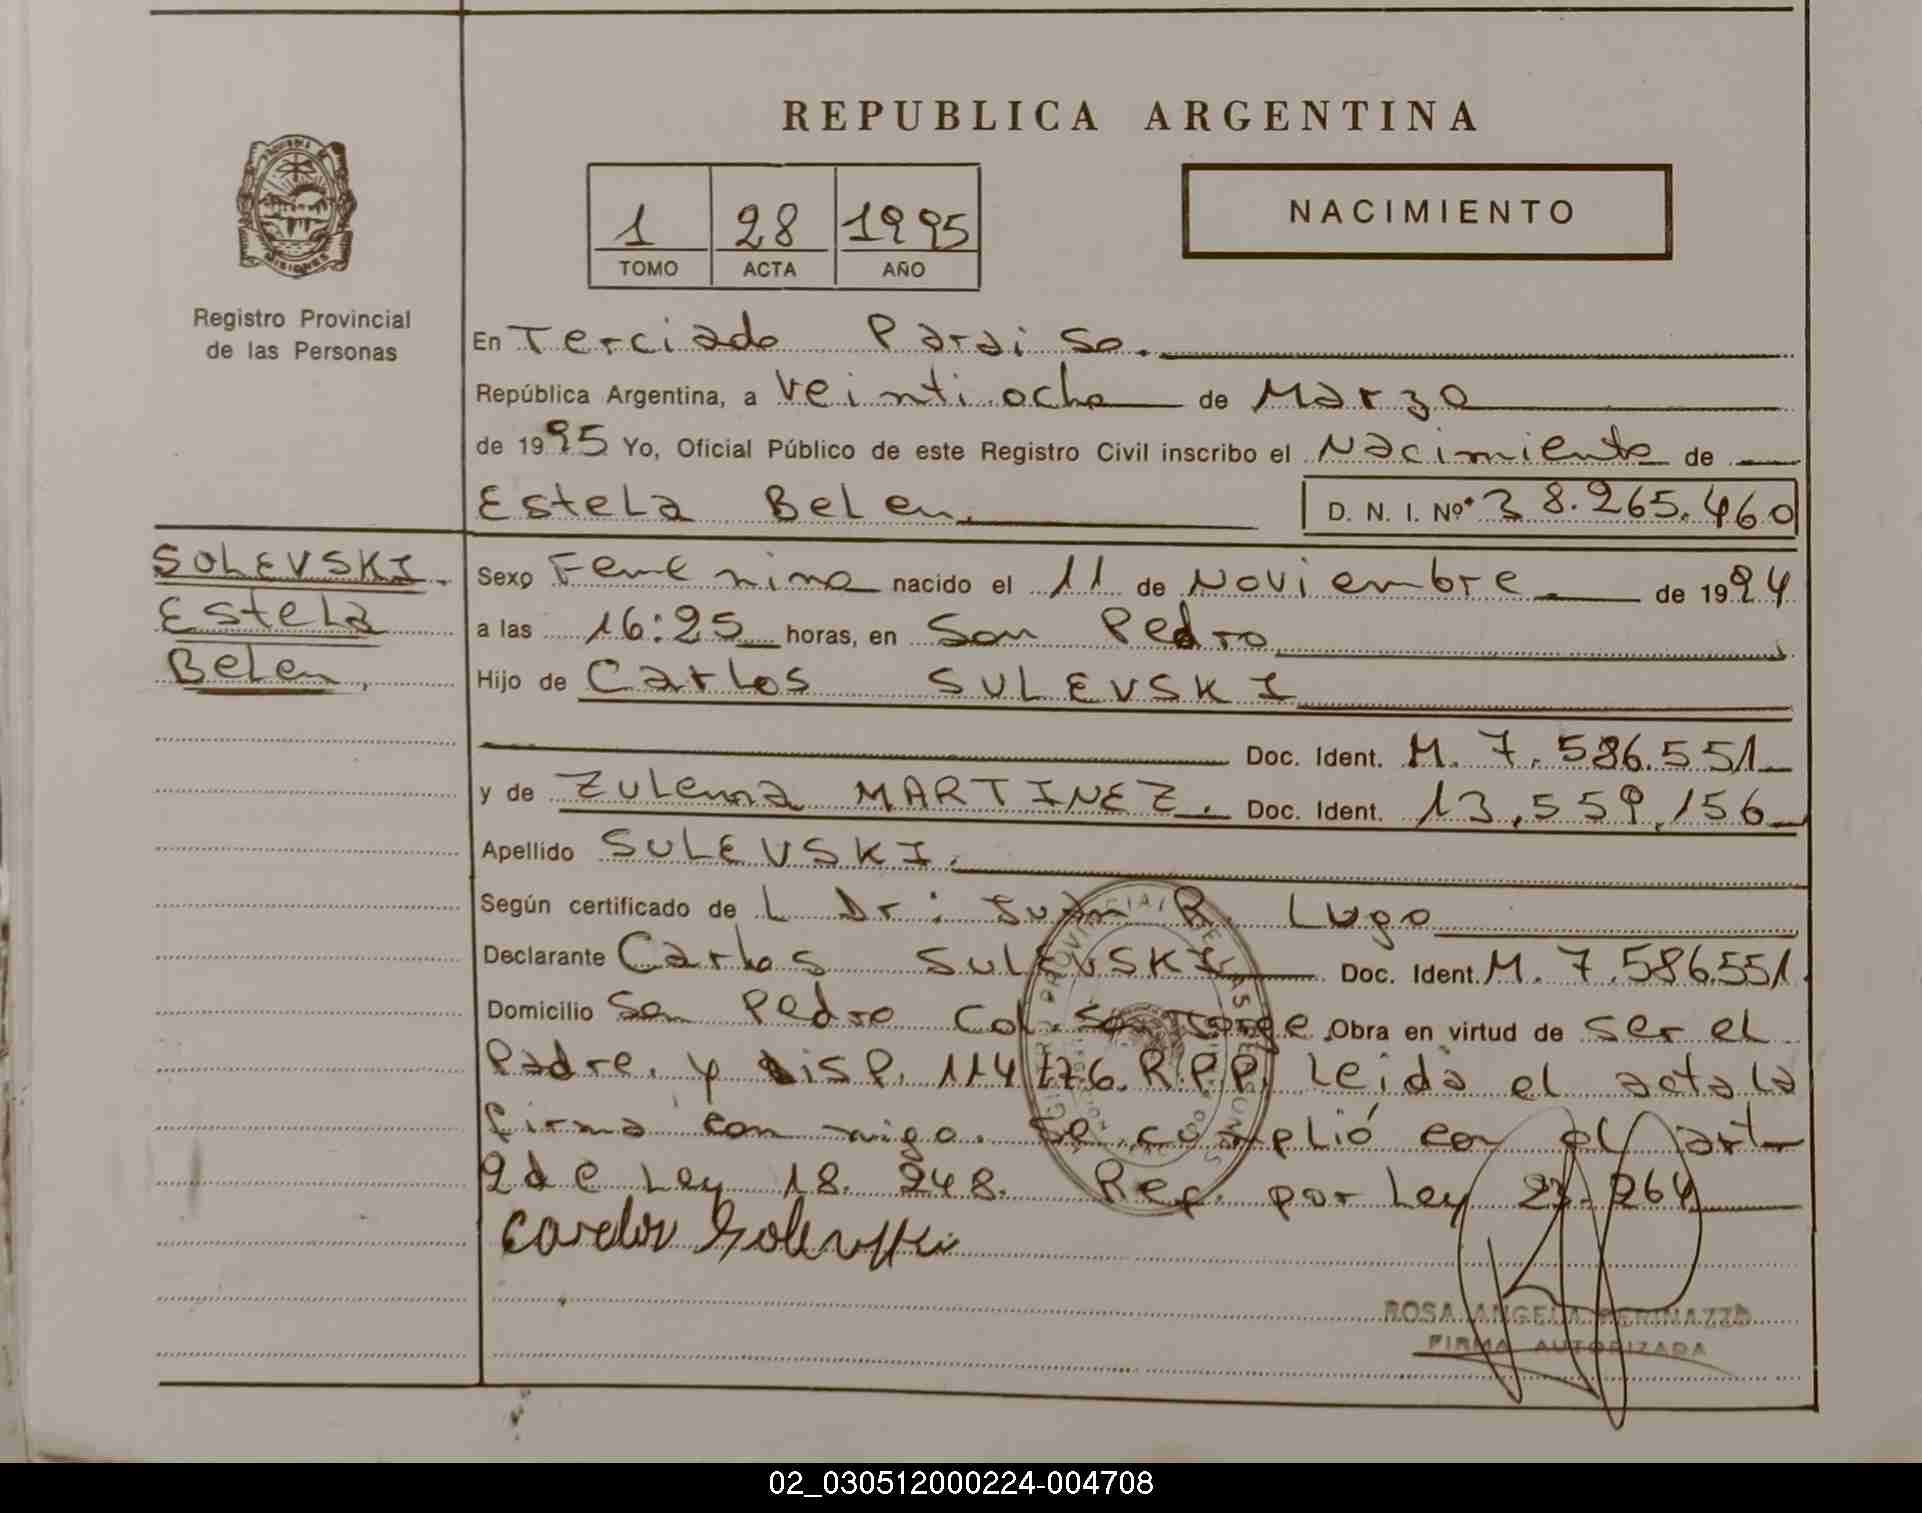 REPUBLICA ARGENTINA
NACIMIENTO
1 28 1995
TOMO ACTA AÑO
MISIONES
Registro Provincial
de las Personas
En Terciado Paraiso.
República Argentina, a Veintiocho de Marzo
de 1995 Yo, Oficial Público de este Registro Civil inscribo el Nacimiento de
Estela Belen. D. N. I. Nº 38.265.460
SULEVSKI.
Estela
Belen.
Sexo Femenino nacido el 11 de Noviembre de 1994
a las 16:25 horas, en San Pedro
Hijo de Carlos SULEVSKI
Doc. Ident. M. 7.586.551
y de Zulema MARTINEZ. Doc. Ident. 13.559.156
Apellido SULEVSKI.
Según certificado de L Dr: Juan R. Lugo
Declarante Carlos SULEVSKI Doc. Ident. M. 7.586.551.
Domicilio San Pedro Col. San Jorge Obra en virtud de ser el
Padre. y Disp. 114/76. R.P.P. Leida el acta la
firma con migo. Se complió con el art
2 de Ley 18.248. Ref. por Ley 23.264
ROSA ANGELA PERINAZZO
FIRMA AUTORIZADA
02_030512000224-004708